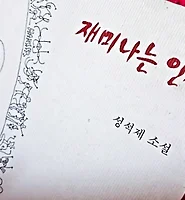 재미나는 인
성석제 소설